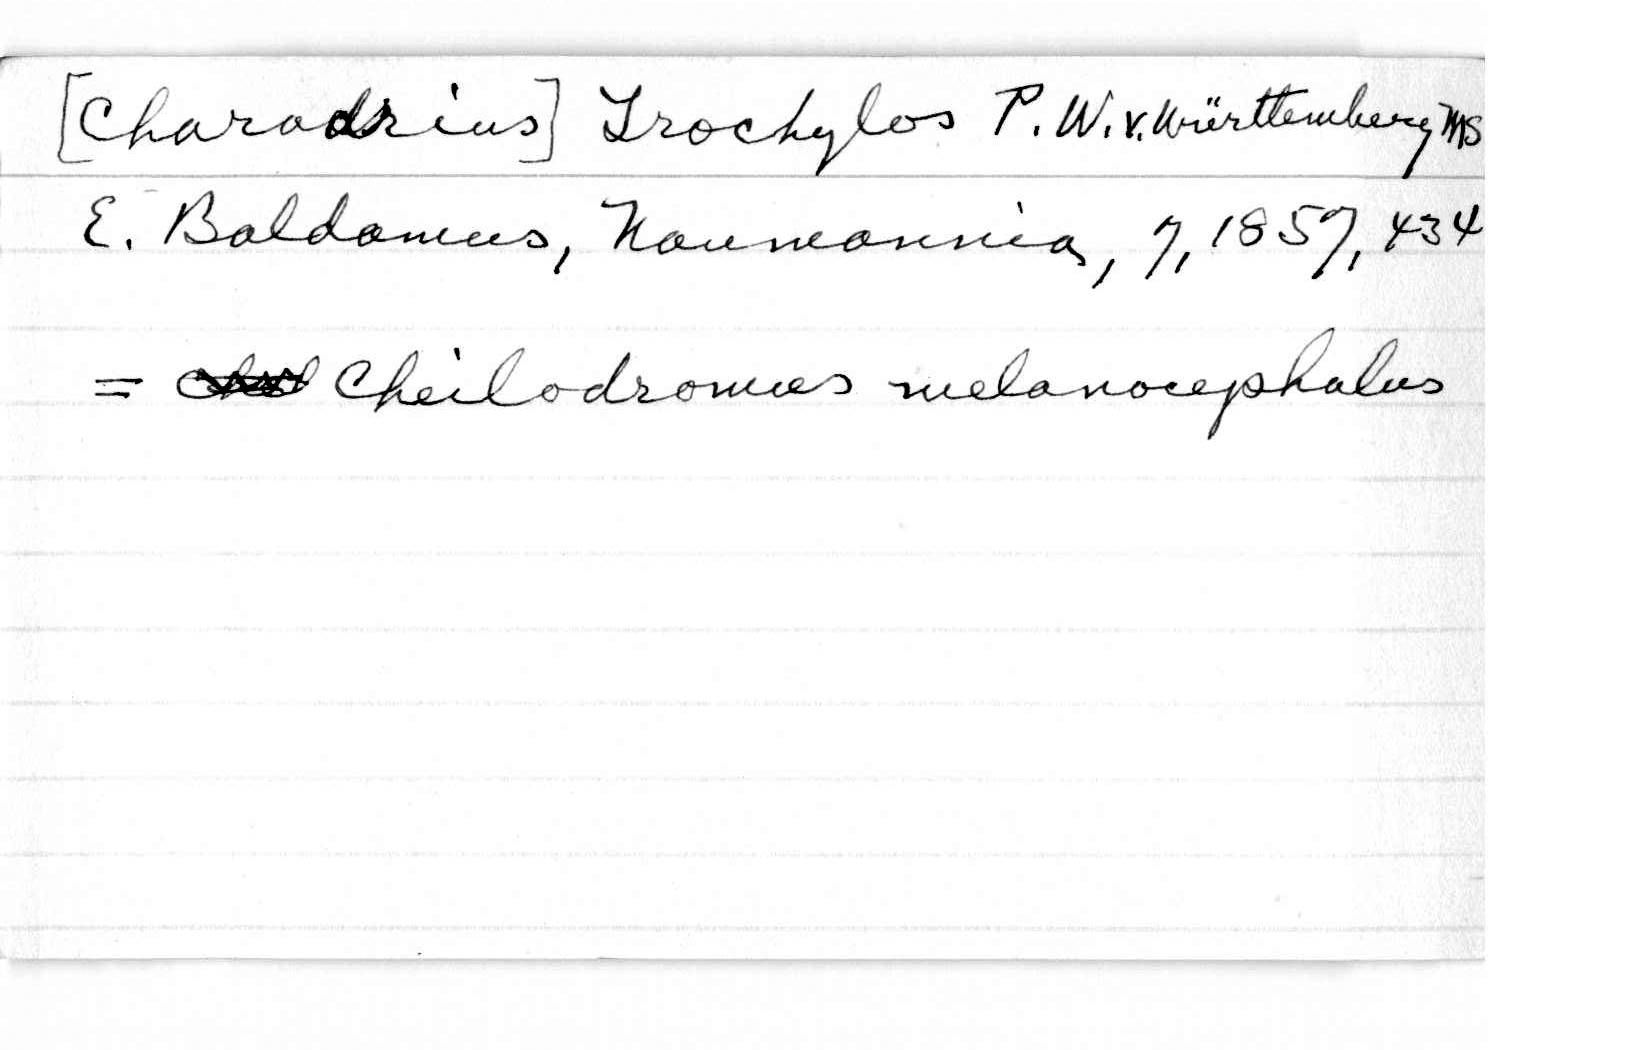 [Charadrius] Trochylos P. W. v. Württemberg MS
E. Baldamus, Naumannia, 7, 1857, 434
= Cheilodromas melanocephalus